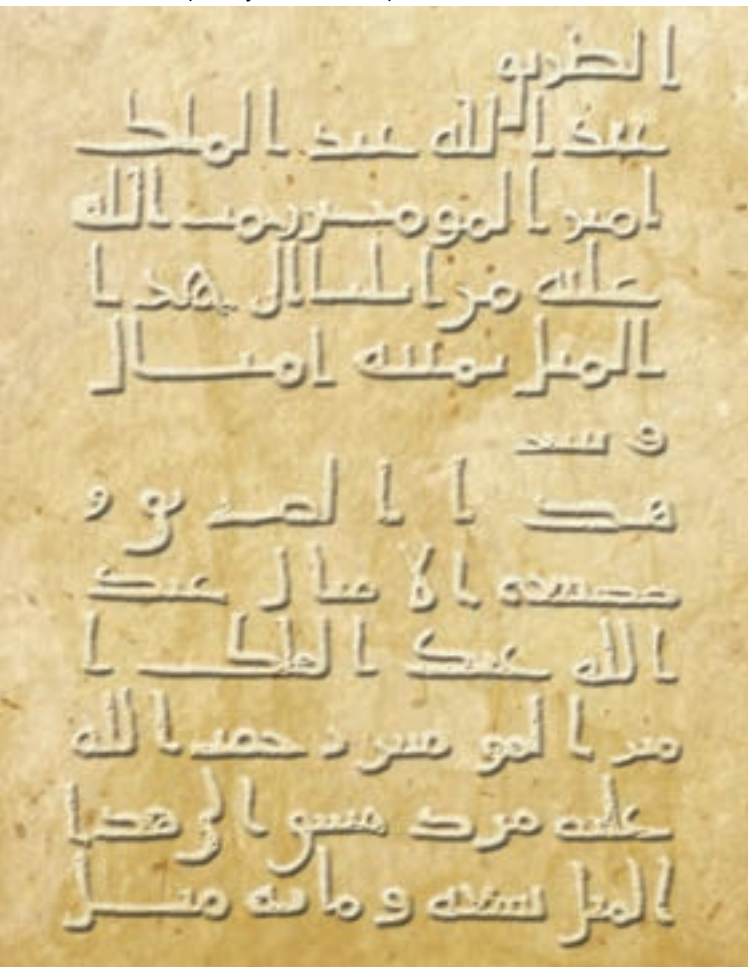 الطريق
عبد الله عبد الملك
امير المومنين رحمت الله
عليه من ايليا ال هذا
الميل ثمنية اميال
و
هذا الطريق و
صنعه الاميال عبد
الله عبد الملك ا
مير المومنين رحمت الله
عليه من دمسق الى هذا
الميل تسعه ومائه ميل